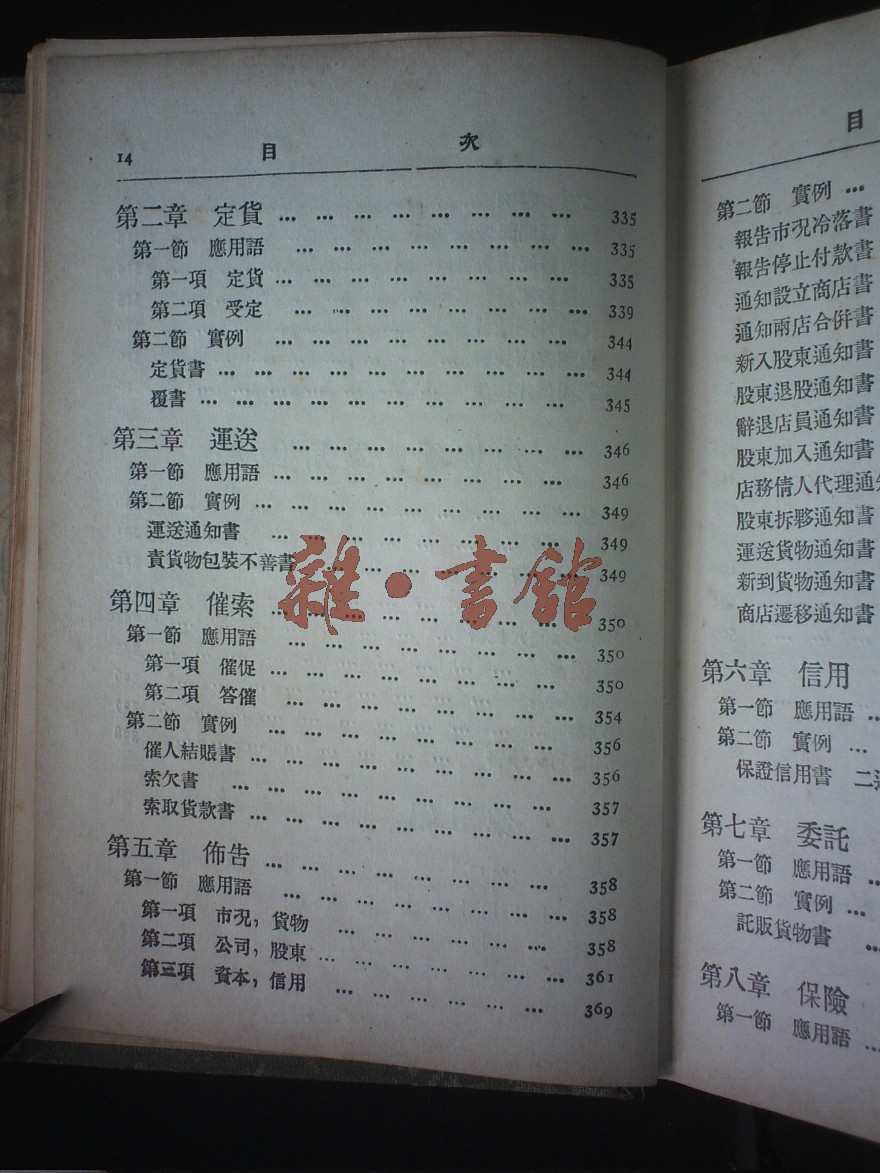 14 目 次
第二章 定貨 … … … … … … … … 335
第一節 應用語 … … … … … … … … 335
第一項 定貨 … … … … … … … … 335
第二項 受定 … … … … … … … … 339
第二節 實例 … … … … … … … … 344
定貨書 … … … … … … … … … 344
覆書 … … … … … … … … … … 345
第三章 運送 … … … … … … … … 346
第一節 應用語 … … … … … … … … 346
第二節 實例 … … … … … … … … 349
運送通知書 … … … … … … … … 349
責貨物包裝不善書 … … … … … … … 349
第四章 催索 … … … … … … … … 350
第一節 應用語 … … … … … … … … 350
第一項 催促 … … … … … … … … 350
第二項 答催 … … … … … … … … 354
第二節 實例 … … … … … … … … 356
催人結賬書 … … … … … … … … 356
索欠書 … … … … … … … … 357
索取貨款書 … … … … … … … … 357
第五章 佈告 … … … … … … … … 358
第一節 應用語 … … … … … … … 358
第一項 市况，貨物 … … … … … … 358
第二項 公司，股東 … … … … … … 361
第三項 資本，信用 … … … … … … 369
雜·書館
目
第二節 實例 …
報告市况冷落書
報告停止付款書
通知設立商店書
通知兩店合併書
新入股東通知書
股東退股通知書
辭退店員通知書
股東加入通知書
店務倩人代理通知
股東拆夥通知書
運送貨物通知書
新到貨物通知書
商店遷移通知書
第六章 信用
第一節 應用語 …
第二節 實例 …
保證信用書 二
第七章 委託
第一節 應用語 …
第二節 實例 …
託販貨物書 …
第八章 保險
第一節 應用語 …